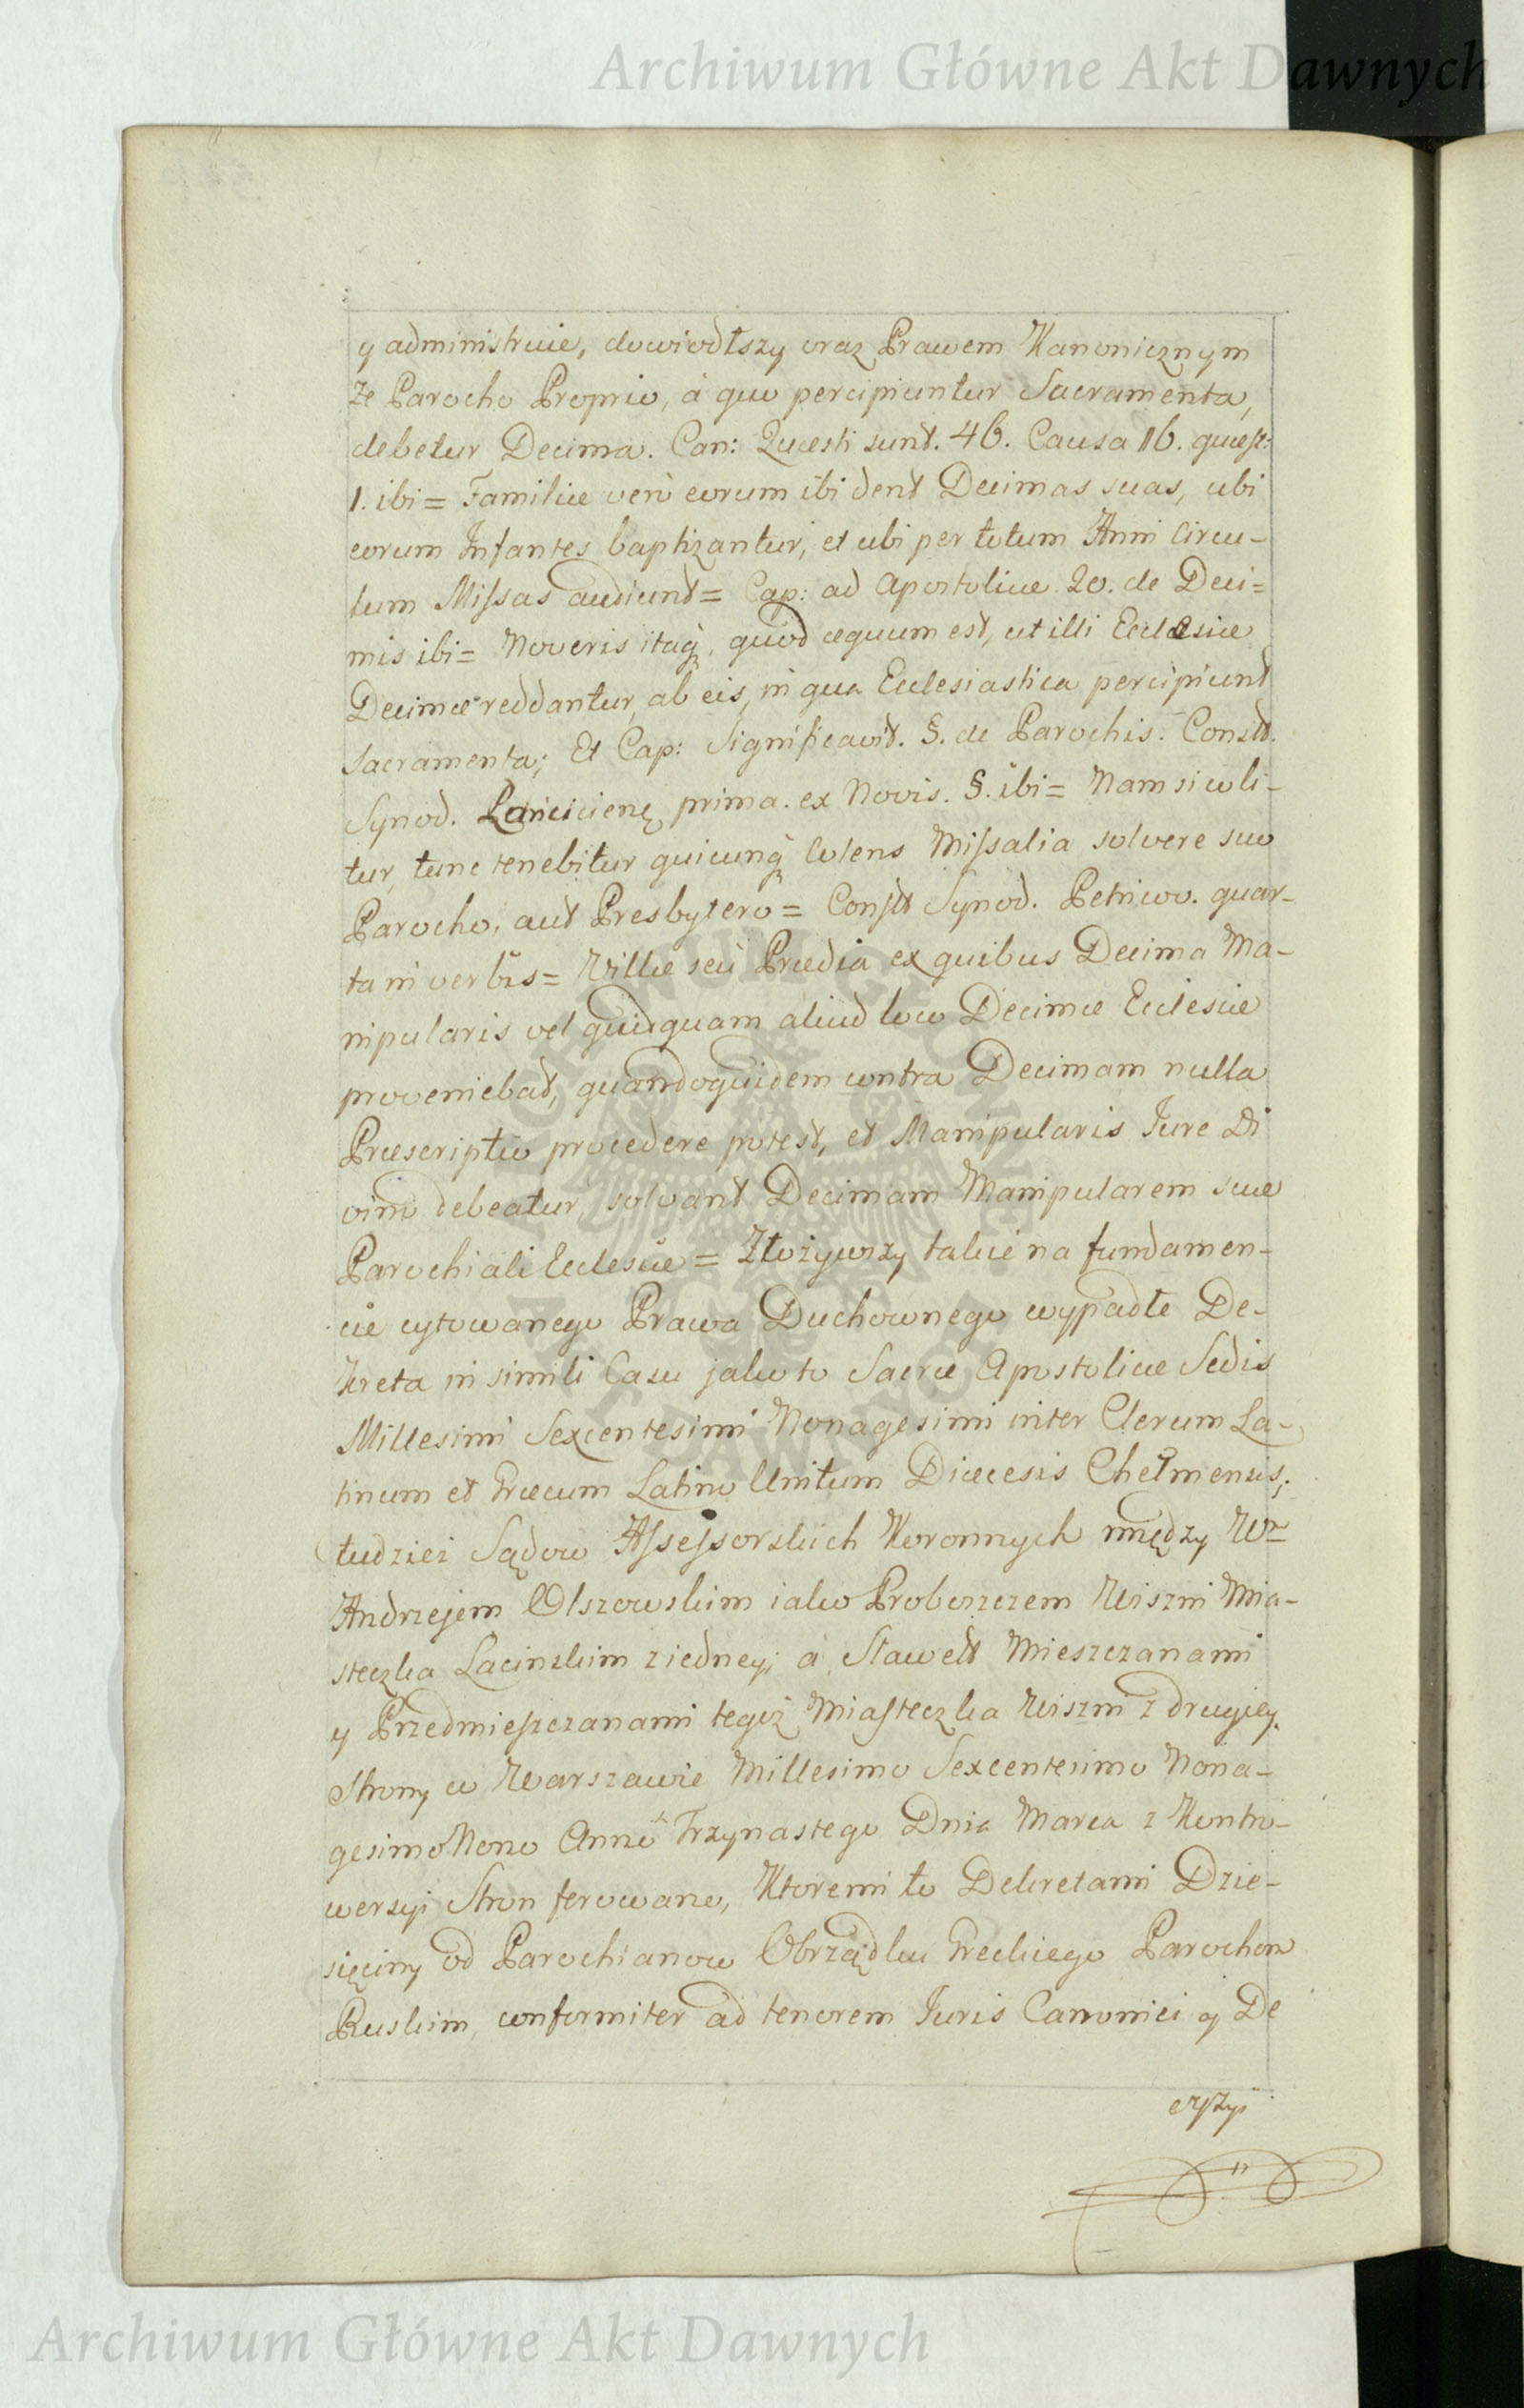 Archiwum Główne Akt Dawnych
y administruie, dowiodłszy oraz Prawem Kanonicznym
że Parocho Proprio, à quo percipiuntur Sacramenta,
debetur Decima. Can: Quæsti sunt. 46. Causa 16. quæst:
1. ibi = Familiæ verò eorum ibi dent Decimas suas, ubi
eorum Infantes baptizantur, et ubi per totum Anni Circu-
lum Missas audiunt = Cap: ad Apostolicæ 20. de Deci=
mis ibi = Noveris itaq, quod æquum est, ut illi Ecclesiæ
Decimæ reddantur, ab eis, in qua Ecclesiastica percipiunt
sacramenta; Et Cap: Significavit. §. de Parochis. Constt.
Synod. Lanciciens prima. ex Novis. §. ibi = Nam si coli-
tur, tunc tenebitur quicunq Colens Missalia solvere suo
Parocho, aut Presbytero = Constt Synod. Petricov. quar-
ta in verbis = Villæ seù Prædia ex quibus Decima Ma-
nipularis vel quidquam aliud loco Decimæ Ecclesiæ
proveniebat, quandoquidem contra Decimam nulla
Præscriptio procedere potest, et Manipularis Jure Di
vino debeatur, solvant Decimam Manipularem suæ
Parochiali Ecclesiæ = Złożywszy takie na fundamen-
cie cytowanego Prawa Duchownego wypadłe De-
kreta in simili Casu jako to Sacræ Apostolicæ Sedis
Millesimi Sexcentesimi Nonagesimi inter Clerum La-
tinum et Græcum Latino Unitum Diæcesis Chełmensis;
tudzież Sądow Assessorskich Koronnych między Wr
Andrzejem Olszowskim iako Proboszczem Wiszni Mia-
steczka Łacinskim z iedney; à Sławett Mieszczanami
y Przedmieszczanami tegoż Miasteczka Wiszni z drugiey
Strony w Warszawie Millesimo Sexcentesimo Nona-
gesimo Nono Anno Trzynastego Dnia Marca z Kontro-
wersyi Stron ferowane, Ktoremi to Dekretami Dzie-
sięciny od Parochianow Obrządku Greckiego Parochom
Ruskim, conformiter ad tenorem Juris Canonici y De
cyzyi
Archiwum Główne Akt Dawnych